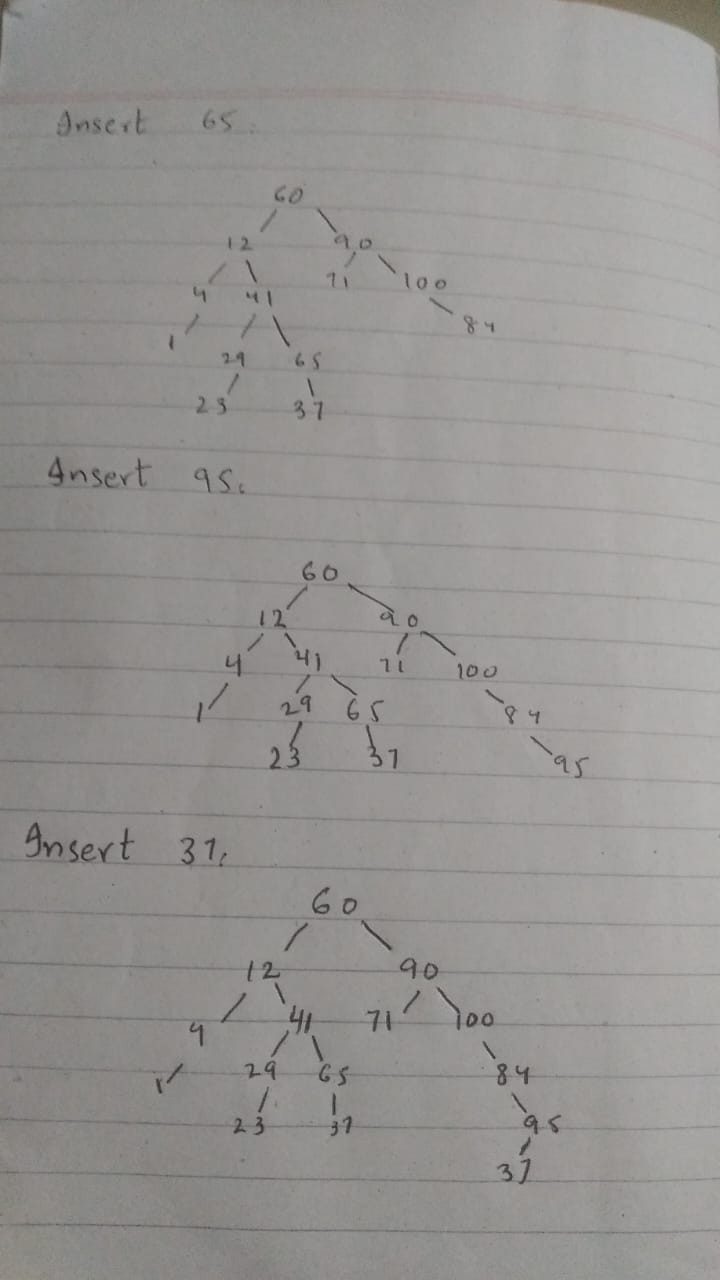 Insert 65.
60
12 90
4 41 71 100
1 29 65 84
23 37
Insert 95.
60
12 90
4 41 71 100
1 29 65 84
23 37 95
Insert 37.
60
12 90
4 41 71 100
1 29 65 84
23 37 95
37